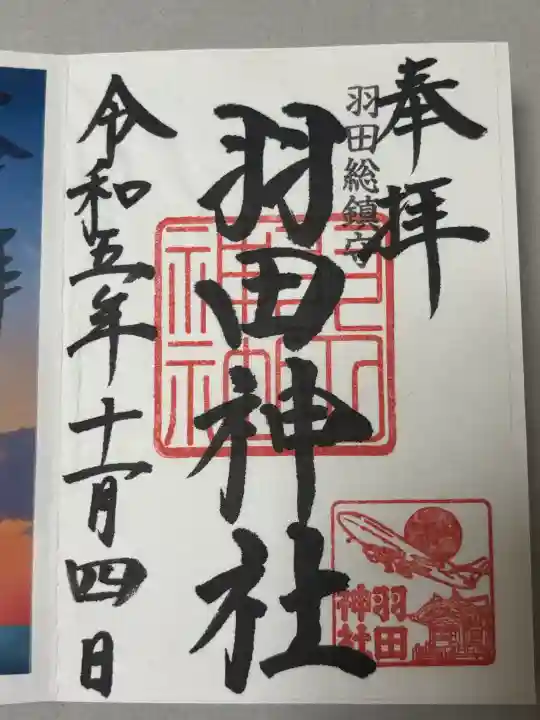 奉拝
羽田総鎮守
羽田神社
令和五年十一月四日
羽田
神社